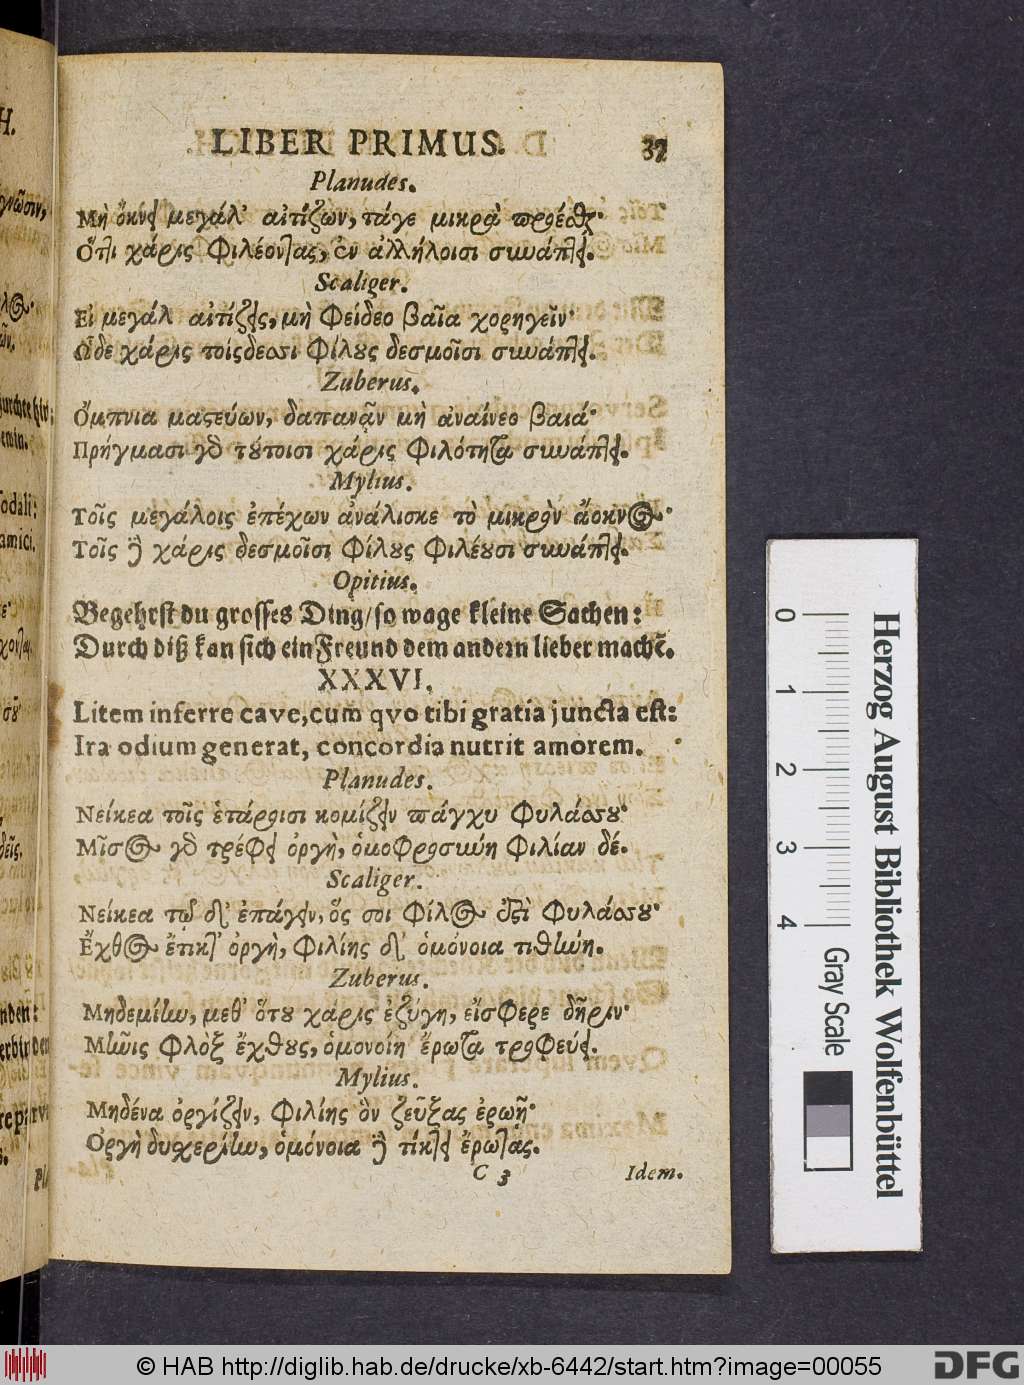 LIBER PRIMUS. 37
Planudes.
Μὴ ὄκνει μεγάλ' αἰτίζων, τάγε μικρὰ προέσθαι·
Ὅτι χάρις φιλέοντας, ἐν ἀλλήλοισι συνάπτει.
Scaliger.
Εἰ μεγάλ αἰτίζεις, μὴ φείδεο βαῖα χορηγεῖν·
Ὧδε χάρις τοίςδεσσι φίλους δεσμοῖσι συνάπτει.
Zuberus.
Ὄμπνια μαστεύων, δαπανᾷν μὴ ἀναίνεο βαιά·
Πρήγμασι γὸ τούτοισι χάρις φιλότητα συνάπτει.
Mylius.
Τοῖς μεγάλοις ἐπέχων ἀνάλισκε τὸ μικρὸν ἄοκνος·
Τοῖς ἢ χάρις δεσμοῖσι φίλους φιλέουσι συνάπτει.
Opitius.
Begehrst du grosses Ding/ so wage kleine Sachen:
Durch diß kan sich ein Freund dem andern lieber machẽ.
XXXVI.
Litem inferre cave, cum qvo tibi gratia juncta est:
Ira odium generat, concordia nutrit amorem.
Planudes.
Νείκεα τοῖς ἑτάροισι κομίζειν πάγχυ φυλάσσου·
Μῖσος γὸ τρέφει ὀργὴ, ὁμοφροσύνη φιλίαν δέ.
Scaliger.
Νείκεα τῷδ' ἐπάγειν, ὅς σοι φίλος ἐστὶ φυλάσσου·
Ἔχθος ἔτικτ' ὀργὴ, φιλίης δ' ὁμόνοια τιθήνη.
Zuberus.
Μηδεμίην, μεθ' ὅτου χάρις ἐζύγη, εἴσφερε δῆριν·
Μῆνις φλὸξ ἔχθους, ὁμονοίη ἔρωτα τροφεύει.
Mylius.
Μηδένα ὀργίζειν, φιλίης ὃν ζεῦξας ἐρωῇ·
Ὀργὴ δυχερίην, ὁμόνοια ἢ τίκτει ἔρωτας.
C 3 Idem.
0 1 2 3 4
Gray Scale
Herzog August Bibliothek Wolfenbüttel
© HAB http://diglib.hab.de/drucke/xb-6442/start.htm?image=00055
DFG